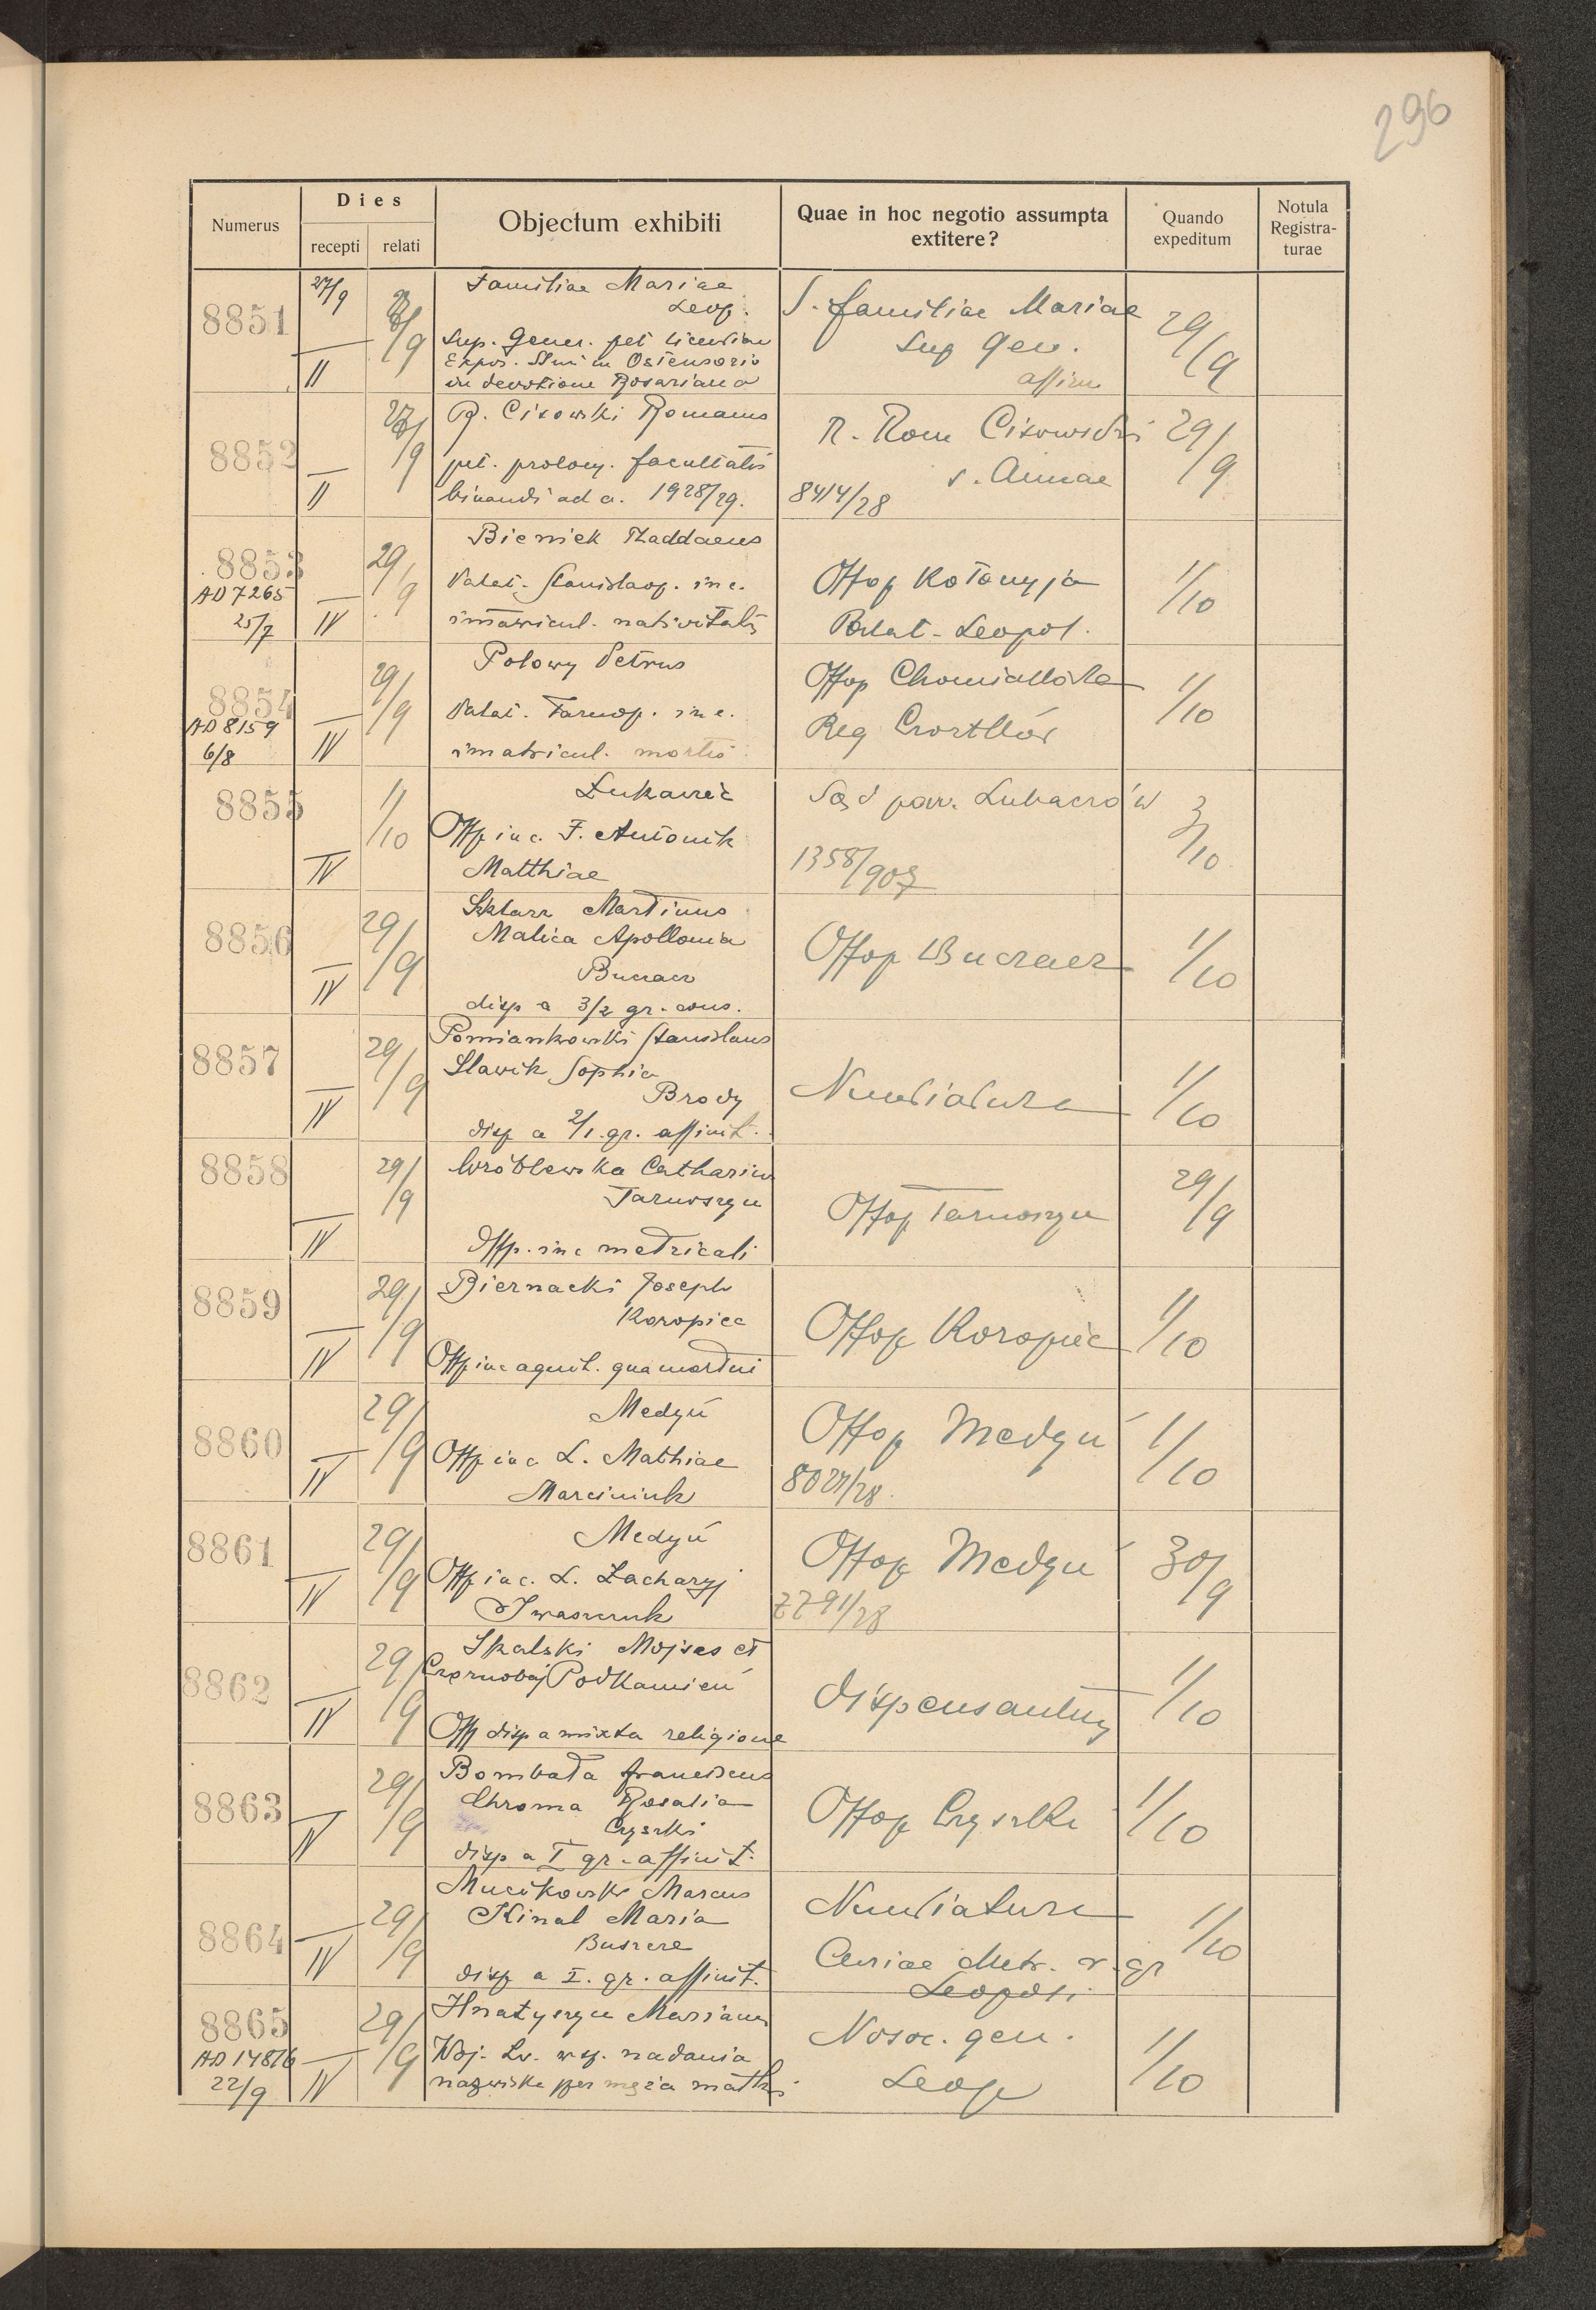 296
Numerus
Dies
recepti relati
Objectum exhibiti
Quae in hoc negotio assumpta
extitere?
Quando
expeditum
Notula
Registra-
turae
8851
27/9
II
/9
Familiae Mariae
Leop.
Sup. Gener. pet licentiam
Expos. Smi in Ostensorio
in devotione Rosariana
S. familiae Mariae
Sup Gen.
affirm
29/9
8852
II
27/9
R. Cisowski Romanus
pet. prolong. facultatis
binandi ad a. 1928/29.
R. Rom Cisowski
s. Annae
8414/28
29/9
8853
AD 7265
25/7
IV
29/9
Bieniek Thaddaeus
Palat. Stanislaop. inc.
imatricul. nativitatis
Offop Kołomyja
Palat. Leopol.
1/10
8854
AD 8159
6/8
IV
29/9
Polowy Petrus
Palat. Tarnop. inc.
imatricul. mortis
Offop Chomiakówka
Reg Czortków
1/10
8855
IV
1/10
Łukawiec
Offp inc. F. Antonik
Matthiae
Sąd pow. Lubaczów
1358/907
3/10
8856
IV
29/9
Szklarz Martinus
Malica Apollonia
Buczacz
disp a 3/2 gr. cons.
Offop Buczacz
1/10
8857
IV
29/9
Pomiankowski Stanislaus
Slawik Sophia
Brody
disp a 2/1. gr. affinit.
Nuntiatura
1/10
8858
IV
29/9
Wróblewska Catharina
Tarnoszyn
Offp. inc metricali
Offop Tarnoszyn
29/9
8859
IV
29/9
Biernacki Joseph
Koropiec
Offp inc agnit. qua mortui
Offop Koropiec
1/10
8860
IV
29/9
Medyń
Offp inc L. Mathiae
Marciniuk
Offop Medyń
8027/28.
1/10
8861
IV
29/9
Medyń
Offp inc. L. Zacharyj
Iwaszczuk
Offop Medyń
7791/28
30/9
8862
IV
29/9
Skalski Mojses et
Czornobaj Podkamień
Offp disp a mixta religione
Dispensantur
1/10
8863
IV
29/9
Bombała Franciscus
Chroma Rosalia
Czyszki
disp a I gr. affinit.
Offop Czyszki
1/10
8864
IV
29/9
Mucikowski Marcus
Kinal Maria
Buszcze
disp a I. gr. affinit.
Nuntiatura
Curiae Metr. r. gr
Leopoli
1/10
8865
AD 14876
22/9
IV
29/9
Hnatyszyn Mariana
Woj. Lv. wsp. nadania
nazwiska per męża matki
Nosoc. gen.
Leop
1/10